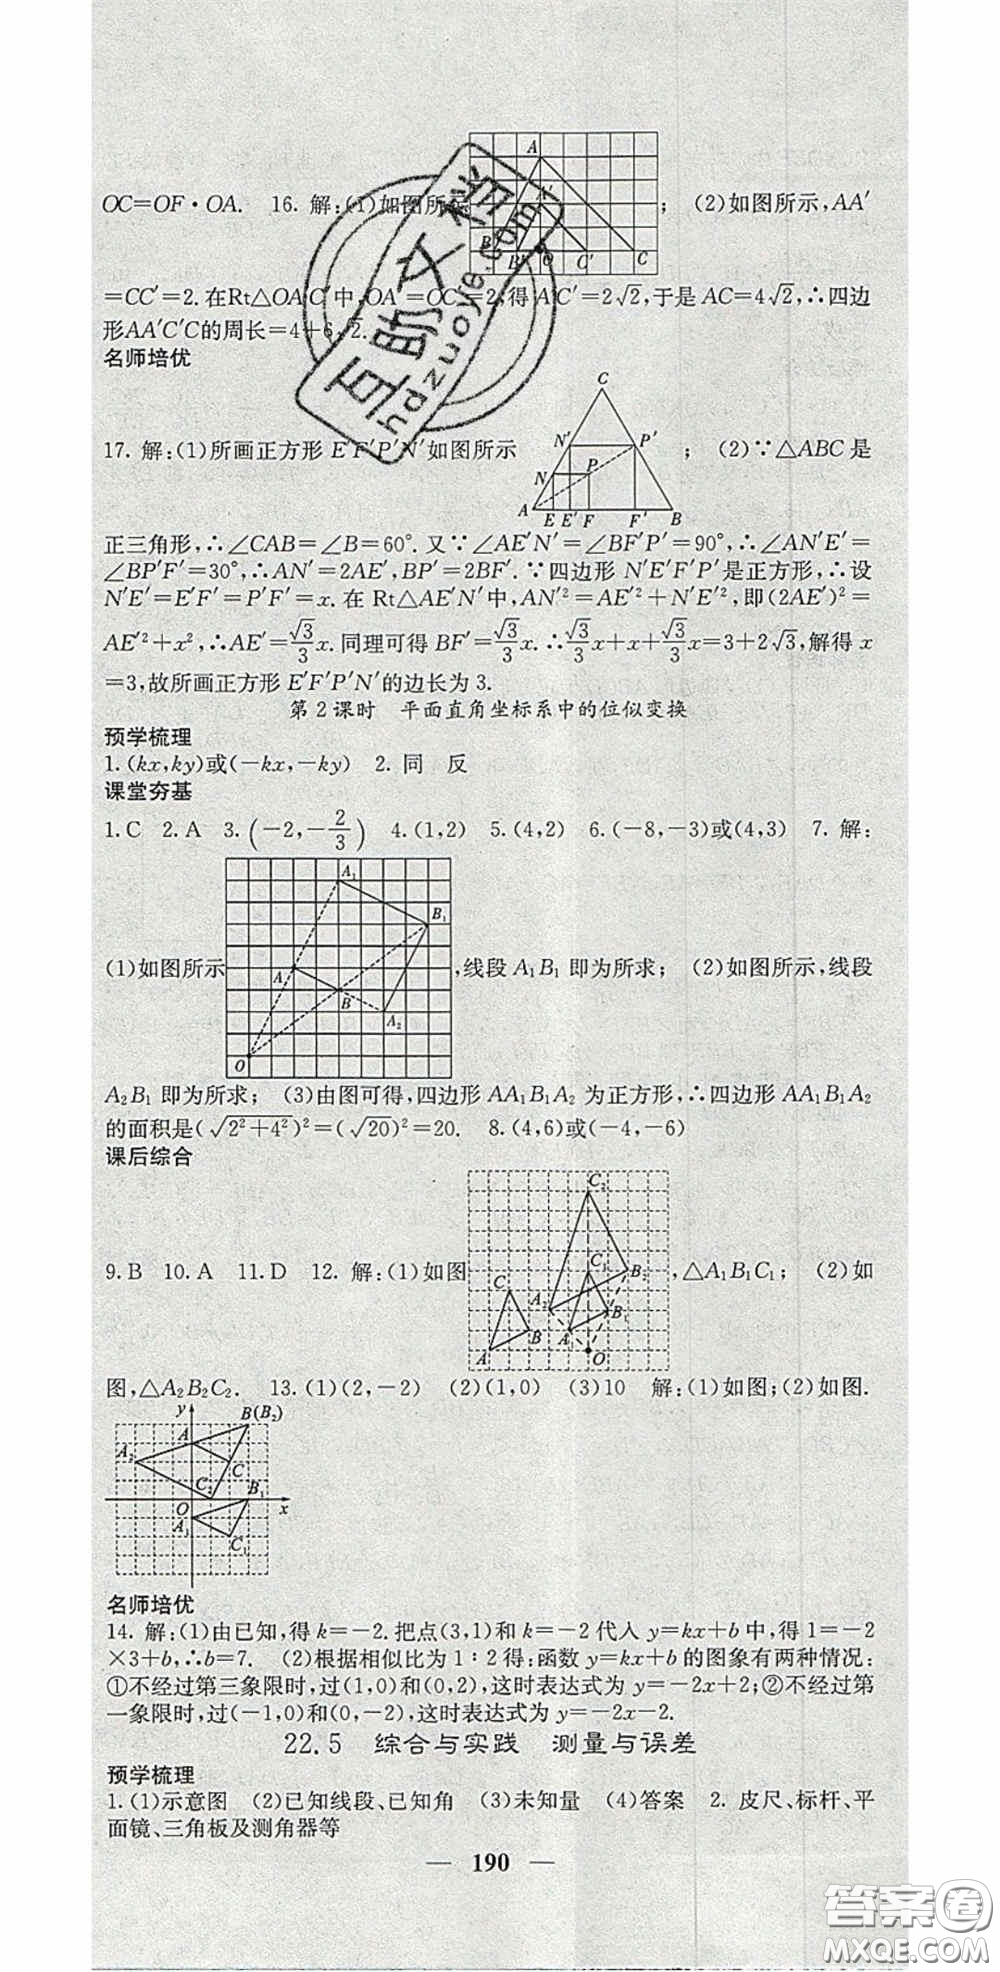 OC=OF·OA. 16. 解:(1)如图所示 ; (2)如图所示,AA′
A
A′
B
B′
O
C′
C
=CC′=2. 在Rt△OA′C′中,OA′=OC′=2,得A′C′=2√2,于是 AC=4√2,∴四边
形AA′C′C的周长=4+6√2.
名师培优
17. 解:(1)所画正方形 E′F′P′N′如图所示 ; (2)∵△ABC 是
C
N′
P′
N
P
A E E′ F F′ B
正三角形,∴∠CAB=∠B=60°. 又∵∠AE′N′=∠BF′P′=90°,∴∠AN′E′=
∠BP′F′=30°,∴AN′=2AE′,BP′=2BF′. ∵四边形 N′E′F′P′是正方形,∴设
N′E′=E′F′=P′F′=x. 在 Rt△AE′N′中,AN′²=AE′²+N′E′²,即(2AE′)²=
AE′²+x²,∴AE′=√3/3x. 同理可得 BF′=√3/3x. ∴√3/3x+x+√3/3x=3+2√3,解得 x
=3,故所画正方形 E′F′P′N′的边长为 3.
第2课时 平面直角坐标系中的位似变换
预学梳理
1. (kx,ky)或(-kx,-ky) 2. 同 反
课堂夯基
1. C 2. A 3. (-2,-2/3) 4. (1,2) 5. (4,2) 6. (-8,-3)或(4,3) 7. 解:
A₁
B₁
(1)如图所示 ,线段 A₁B₁ 即为所求; (2)如图所示,线段
A
B
A₂
O
A₂B₁ 即为所求; (3)由图可得,四边形 AA₁B₁A₂ 为正方形,∴四边形 AA₁B₁A₂
的面积是(√2²+4²)²=(√20)²=20. 8. (4,6)或(-4,-6)
课后综合
9. B 10. A 11. D 12. 解:(1)如图 ,△A₁B₁C₁; (2)如
C₂
C₁
B₂
C
A₂
B₁
B
A₁
A
O
图,△A₂B₂C₂. 13. (1)(2,-2) (2)(1,0) (3)10 解:(1)如图;(2)如图.
y
B(B₂)
A
A₂
C
C₂
B₁
O
x
A₁
C₁
名师培优
14. 解:(1)由已知,得 k=-2. 把点(3,1)和 k=-2 代入 y=kx+b 中,得 1=-2
×3+b,∴b=7. (2)根据相似比为 1∶2 得:函数 y=kx+b 的图象有两种情况:
①不经过第三象限时,过(1,0)和(0,2),这时表达式为 y=-2x+2;②不经过第
一象限时,过(-1,0)和(0,-2),这时表达式为 y=-2x-2.
22.5 综合与实践 测量与误差
预学梳理
1. (1)示意图 (2)已知线段、已知角 (3)未知量 (4)答案 2. 皮尺、标杆、平
面镜、三角板及测角器等
— 190 —
答案圈
MXQE.COM